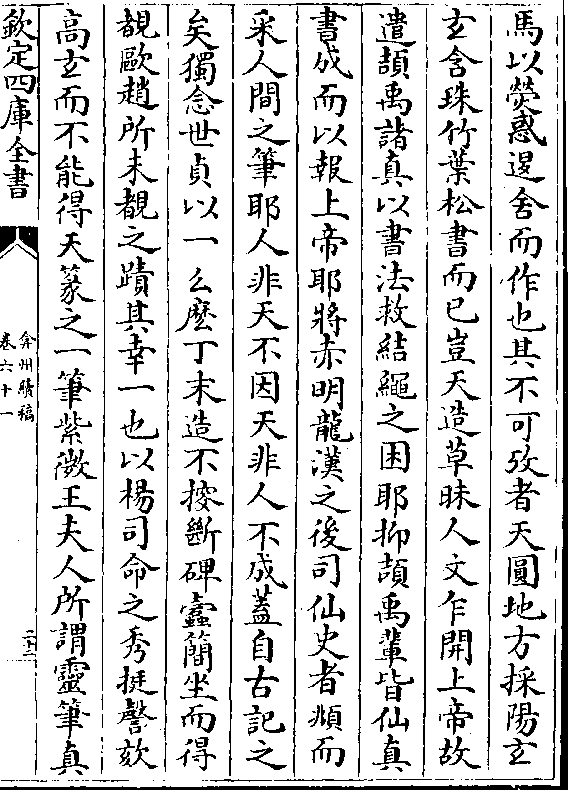 馬以熒惑退舍而作也其不可攷者天圓地方採陽玄
玄含珠竹葉松書而已豈天造草昧人文乍開上帝故
遣頡禹諸真以書法救結繩之困耶抑頡禹輩皆仙真
書成而以報上帝耶將赤明龍漢之後司仙史者頫而
采人間之筆耶人非天不因天非人不成蓋自古記之
矣獨念世貞以一么麽丁末造不挍斷碑蠧簡坐而得
覩歐趙所未覩之蹟其幸一也以楊司命之秀挺謦欬
高玄而不能得天篆之一筆紫微王夫人所謂靈筆真
欽定四庫全書
弇州續稿
卷六十一
二十二